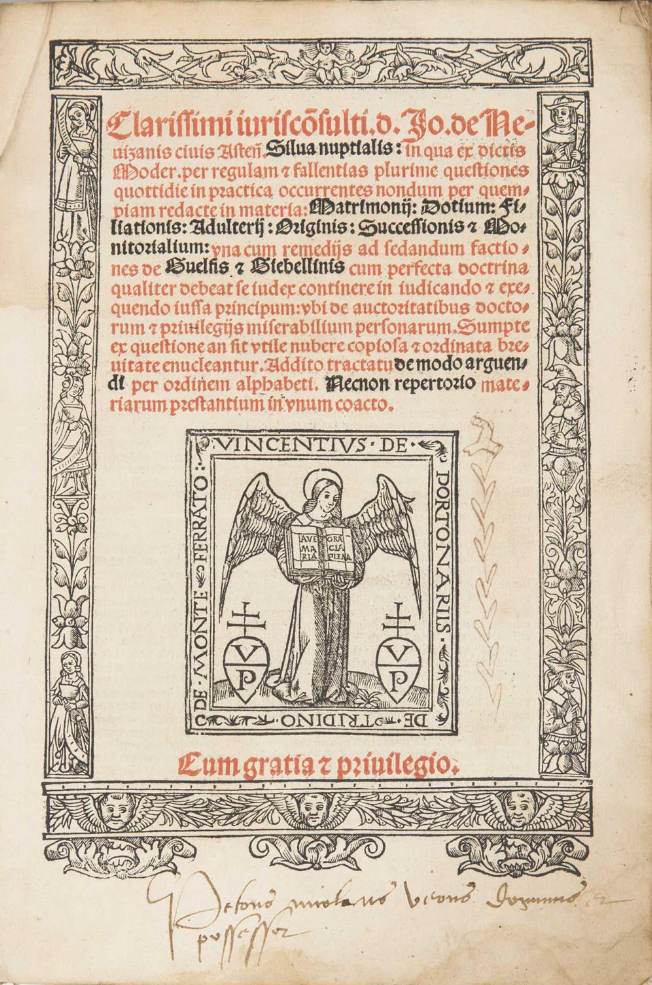 Clarissimi iuriscōsulti.d. Jo. de Ne-
uizanis ciuis Asteñ. Silua nuptialis: in qua ex dictis
Moder. per regulam ⁊ fallentias plurime questiones
quottidie in practica occurrentes nondum per quem-
piam redacte in materia: Matrimonij: Dotium: Fi-
liationis: Adulterij: Originis: Successionis ⁊ Mo-
nitorialium: vna cum remedijs ad sedandum factio-
nes de Guelfis ⁊ Giebellinis cum perfecta doctrina
qualiter debeat se iudex continere in iudicando ⁊ exe-
quendo iussa principum: vbi de auctoritatibus docto-
rum ⁊ priuilegijs miserabilium personarum. Sumpte
ex questione an sit vtile nubere copiosa ⁊ ordinata bre-
uitate enucleantur. Addito tractatu de modo arguen-
di per ordinem alphabeti. Necnon repertorio mate-
riarum prestantium in vnum coacto.
VINCENTIVS · DE ·
PORTONARIIS ·
DE TRIDINO
DE · MONTE FERRATO :
AVE GRA
MA CIA
RIA PLENA
VP
VP
Cum gratia ⁊ priuilegio.
possessor